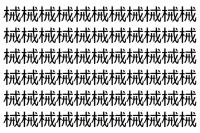 械械械械械械械械械械
械械械械械械械械械械
械械械械械械械械械械
械械械械械械械械械械
械械械械械械械械械械
械械械械械械械械械械